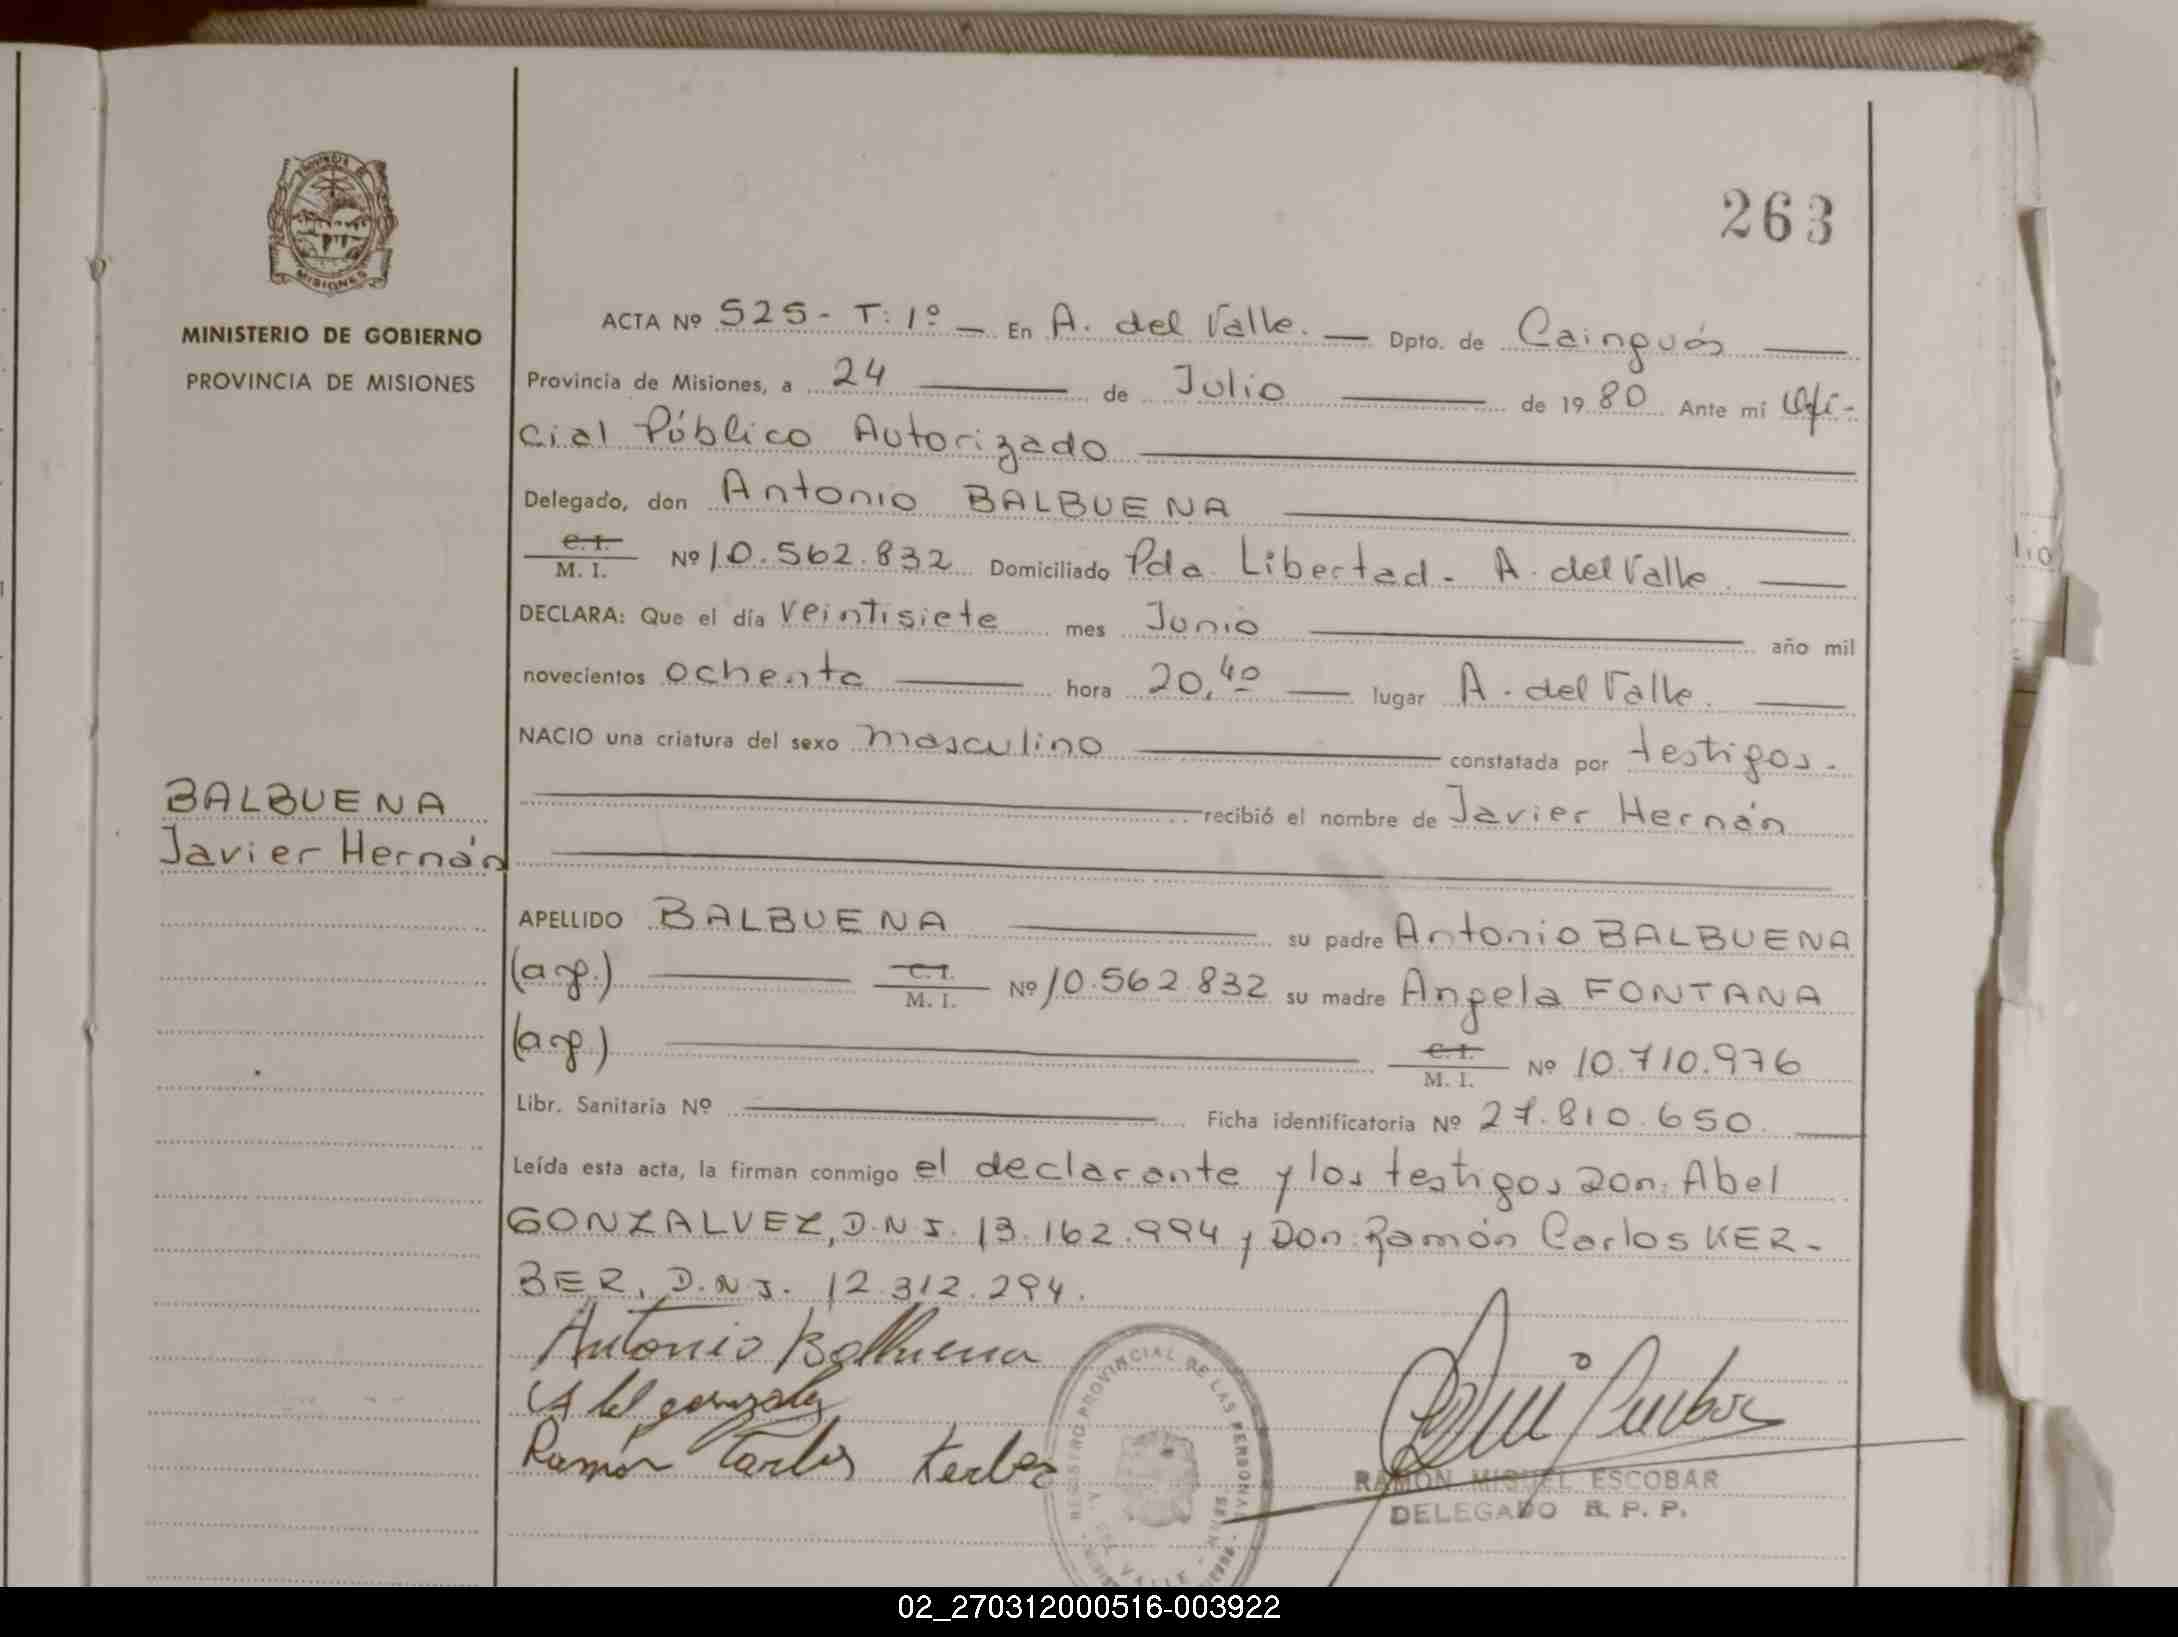 263
MINISTERIO DE GOBIERNO
PROVINCIA DE MISIONES
MISIONES
BALBUENA
Javier Hernán
ACTA Nº 525 - T: 1º — En A. del Valle. — Dpto. de Cainguás —
Provincia de Misiones, a 24 — de Julio — de 1980 Ante mí Ofi-
cial Público Autorizado —
Delegado, don Antonio BALBUENA —
C. I.
M. I. Nº 10.562.832 Domiciliado Pda Libertad - A. del Valle. —
DECLARA: Que el día veintisiete mes Junio — año mil
novecientos ochenta — hora 20,40 — lugar A. del Valle. —
NACIO una criatura del sexo masculino — constatada por testigos. -
— recibió el nombre de Javier Hernán
—
APELLIDO BALBUENA — su padre Antonio BALBUENA
(arg.) — C. I. M. I. Nº 10.562.832 su madre Angela FONTANA
(arg.) — C. I. M. I. Nº 10.710.976
Libr. Sanitaria Nº — Ficha identificatoria Nº 27.810.650. —
Leída esta acta, la firman conmigo el declarante y los testigos Don: Abel
GONZALVEZ, D.N.I. 13.162.994 y Don Ramón Carlos KER-
BER, D.N.I. 12.312.294.
Antonio Balbuena
Abel gonzalvez
Ramón Carlos Kerber
REGISTRO PROVINCIAL DE LAS PERSONAS
DEL VALLE
RAMON MIGUEL ESCOBAR
DELEGADO R. P. P.
02_270312000516-003922